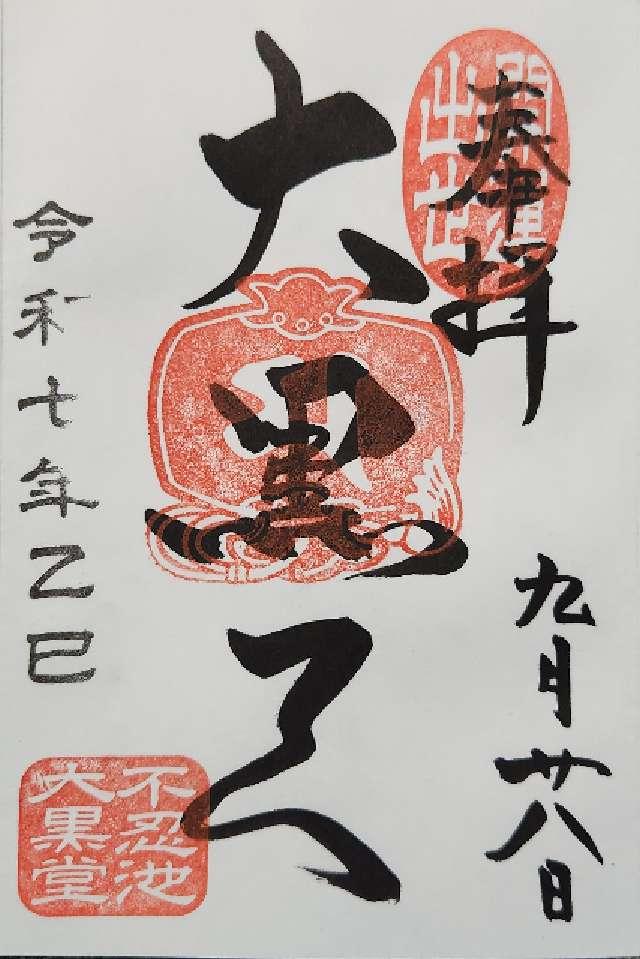 奉拝
開運
出世
九月廿八日
大黒天
令和七年乙巳
不忍池
大黒堂